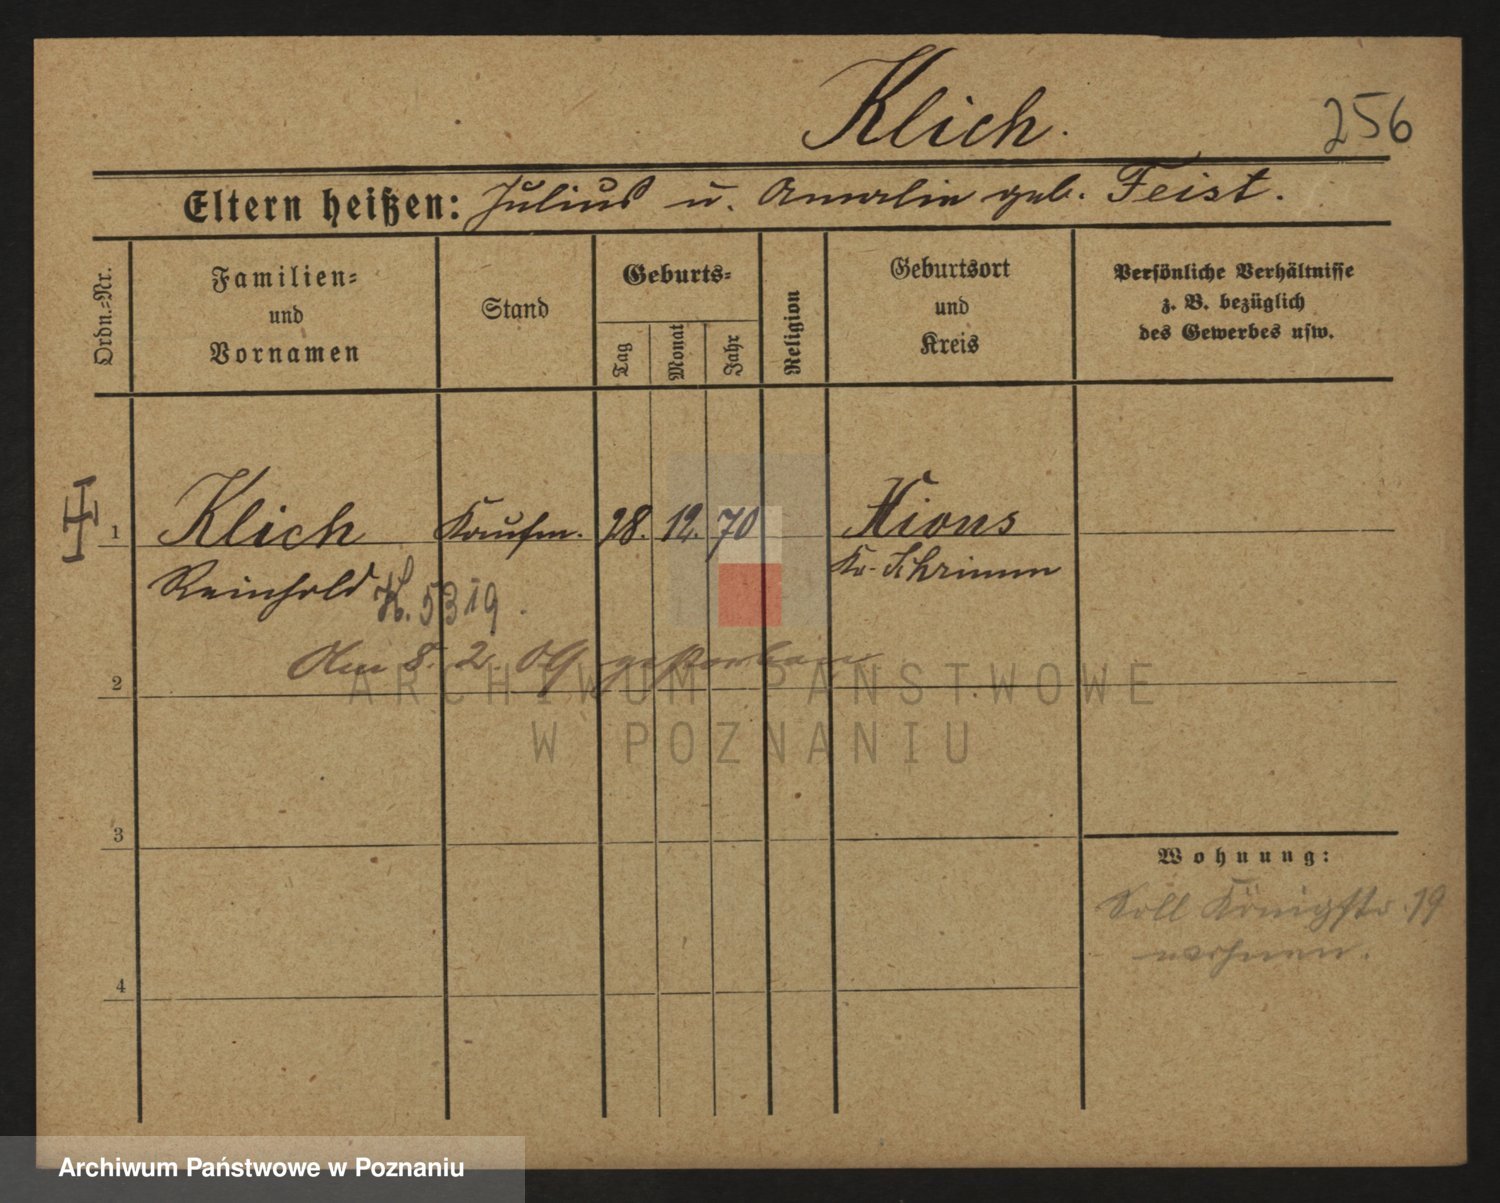 Klich.
256
Eltern heißen: Julius u. Amalie geb. Feist.
Ordn.-Nr.
Familien-
und
Vornamen
Stand
Geburts-
Tag
Monat
Jahr
Religion
Geburtsort
und
Kreis
Persönliche Verhältnisse
z. B. bezüglich
des Gewerbes usw.
1 Klich Kaufm. 28. 12. 70 Xions
Reinhold Kr. Schrimm
K. 53 19.
Am 8. 2. 09 gestorben
ARCHIWUM PAŃSTWOWE
W POZNANIU
2
3
Wohnung:
Soll Königstr. 19
wohnen.
4
Archiwum Państwowe w Poznaniu